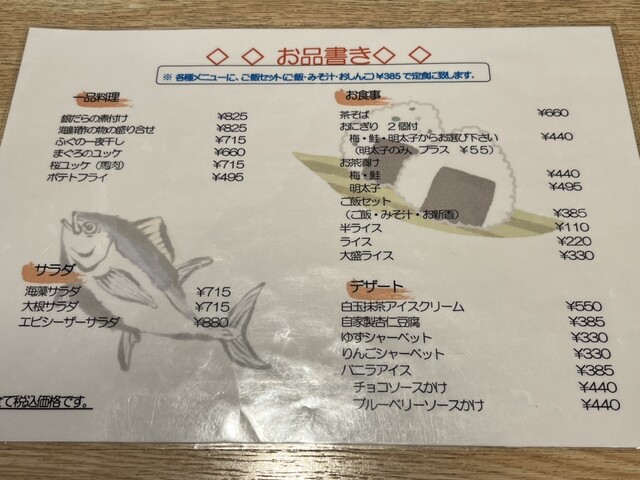 ◇ ◇ お品書き ◇ ◇
※ 各種メニューに、ご飯セット(ご飯・みそ汁・おしんこ)¥385で定食に致します。
一品料理
銀だらの煮付け ¥825
海鮮酢の物の盛り合せ ¥825
ふぐの一夜干し ¥715
まぐろのユッケ ¥660
桜ユッケ(馬肉) ¥715
ポテトフライ ¥495
サラダ
海藻サラダ ¥715
大根サラダ ¥715
エビシーザーサラダ ¥880
て税込価格です。
お食事
茶そば ¥660
おにぎり 2個付
梅・鮭・明太子からお選び下さい ¥440
(明太子のみ、プラス ¥55)
お茶漬け
梅・鮭 ¥440
明太子 ¥495
ご飯セット
(ご飯・みそ汁・お新香) ¥385
半ライス ¥110
ライス ¥220
大盛ライス ¥330
デザート
白玉抹茶アイスクリーム ¥550
自家製杏仁豆腐 ¥385
ゆずシャーベット ¥330
りんごシャーベット ¥330
バニラアイス ¥385
チョコソースかけ ¥440
ブルーベリーソースかけ ¥440